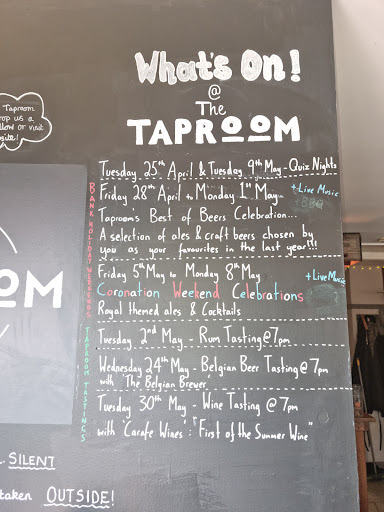 What's On!
@
The
TAPROOM
Taproom
op us a
llow or visit
site!
Tuesday 25th April & Tuesday 9th May - Quiz Nights
BANK HOLIDAY WEEKENDS
Friday 28th April to Monday 1st May - + Live Music
+ BBQ
Taproom's Best of Beers Celebration...
A selection of ales & craft beers chosen by
you as your favourites in the last year!!!
Friday 5th May to Monday 8th May + Live Music
Coronation Weekend Celebrations
Royal themed ales & Cocktails
OOM
TAPROOM TASTINGS
Tuesday 2nd May - Rum Tasting @ 7pm
Wednesday 24th May - Belgian Beer Tasting @ 7pm
with 'The Belgian Brewer'
Tuesday 30th May - Wine Tasting @ 7pm
with 'Carafe Wines': "First of the Summer Wine"
SILENT
taken OUTSIDE!